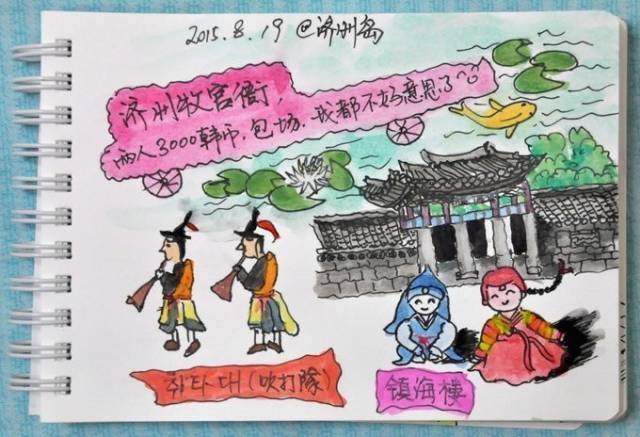 2015.8.19 @济州岛
济州牧官衙,
两人3000韩币,包场.我都不好意思了~
취타대(吹打隊)
镇海楼